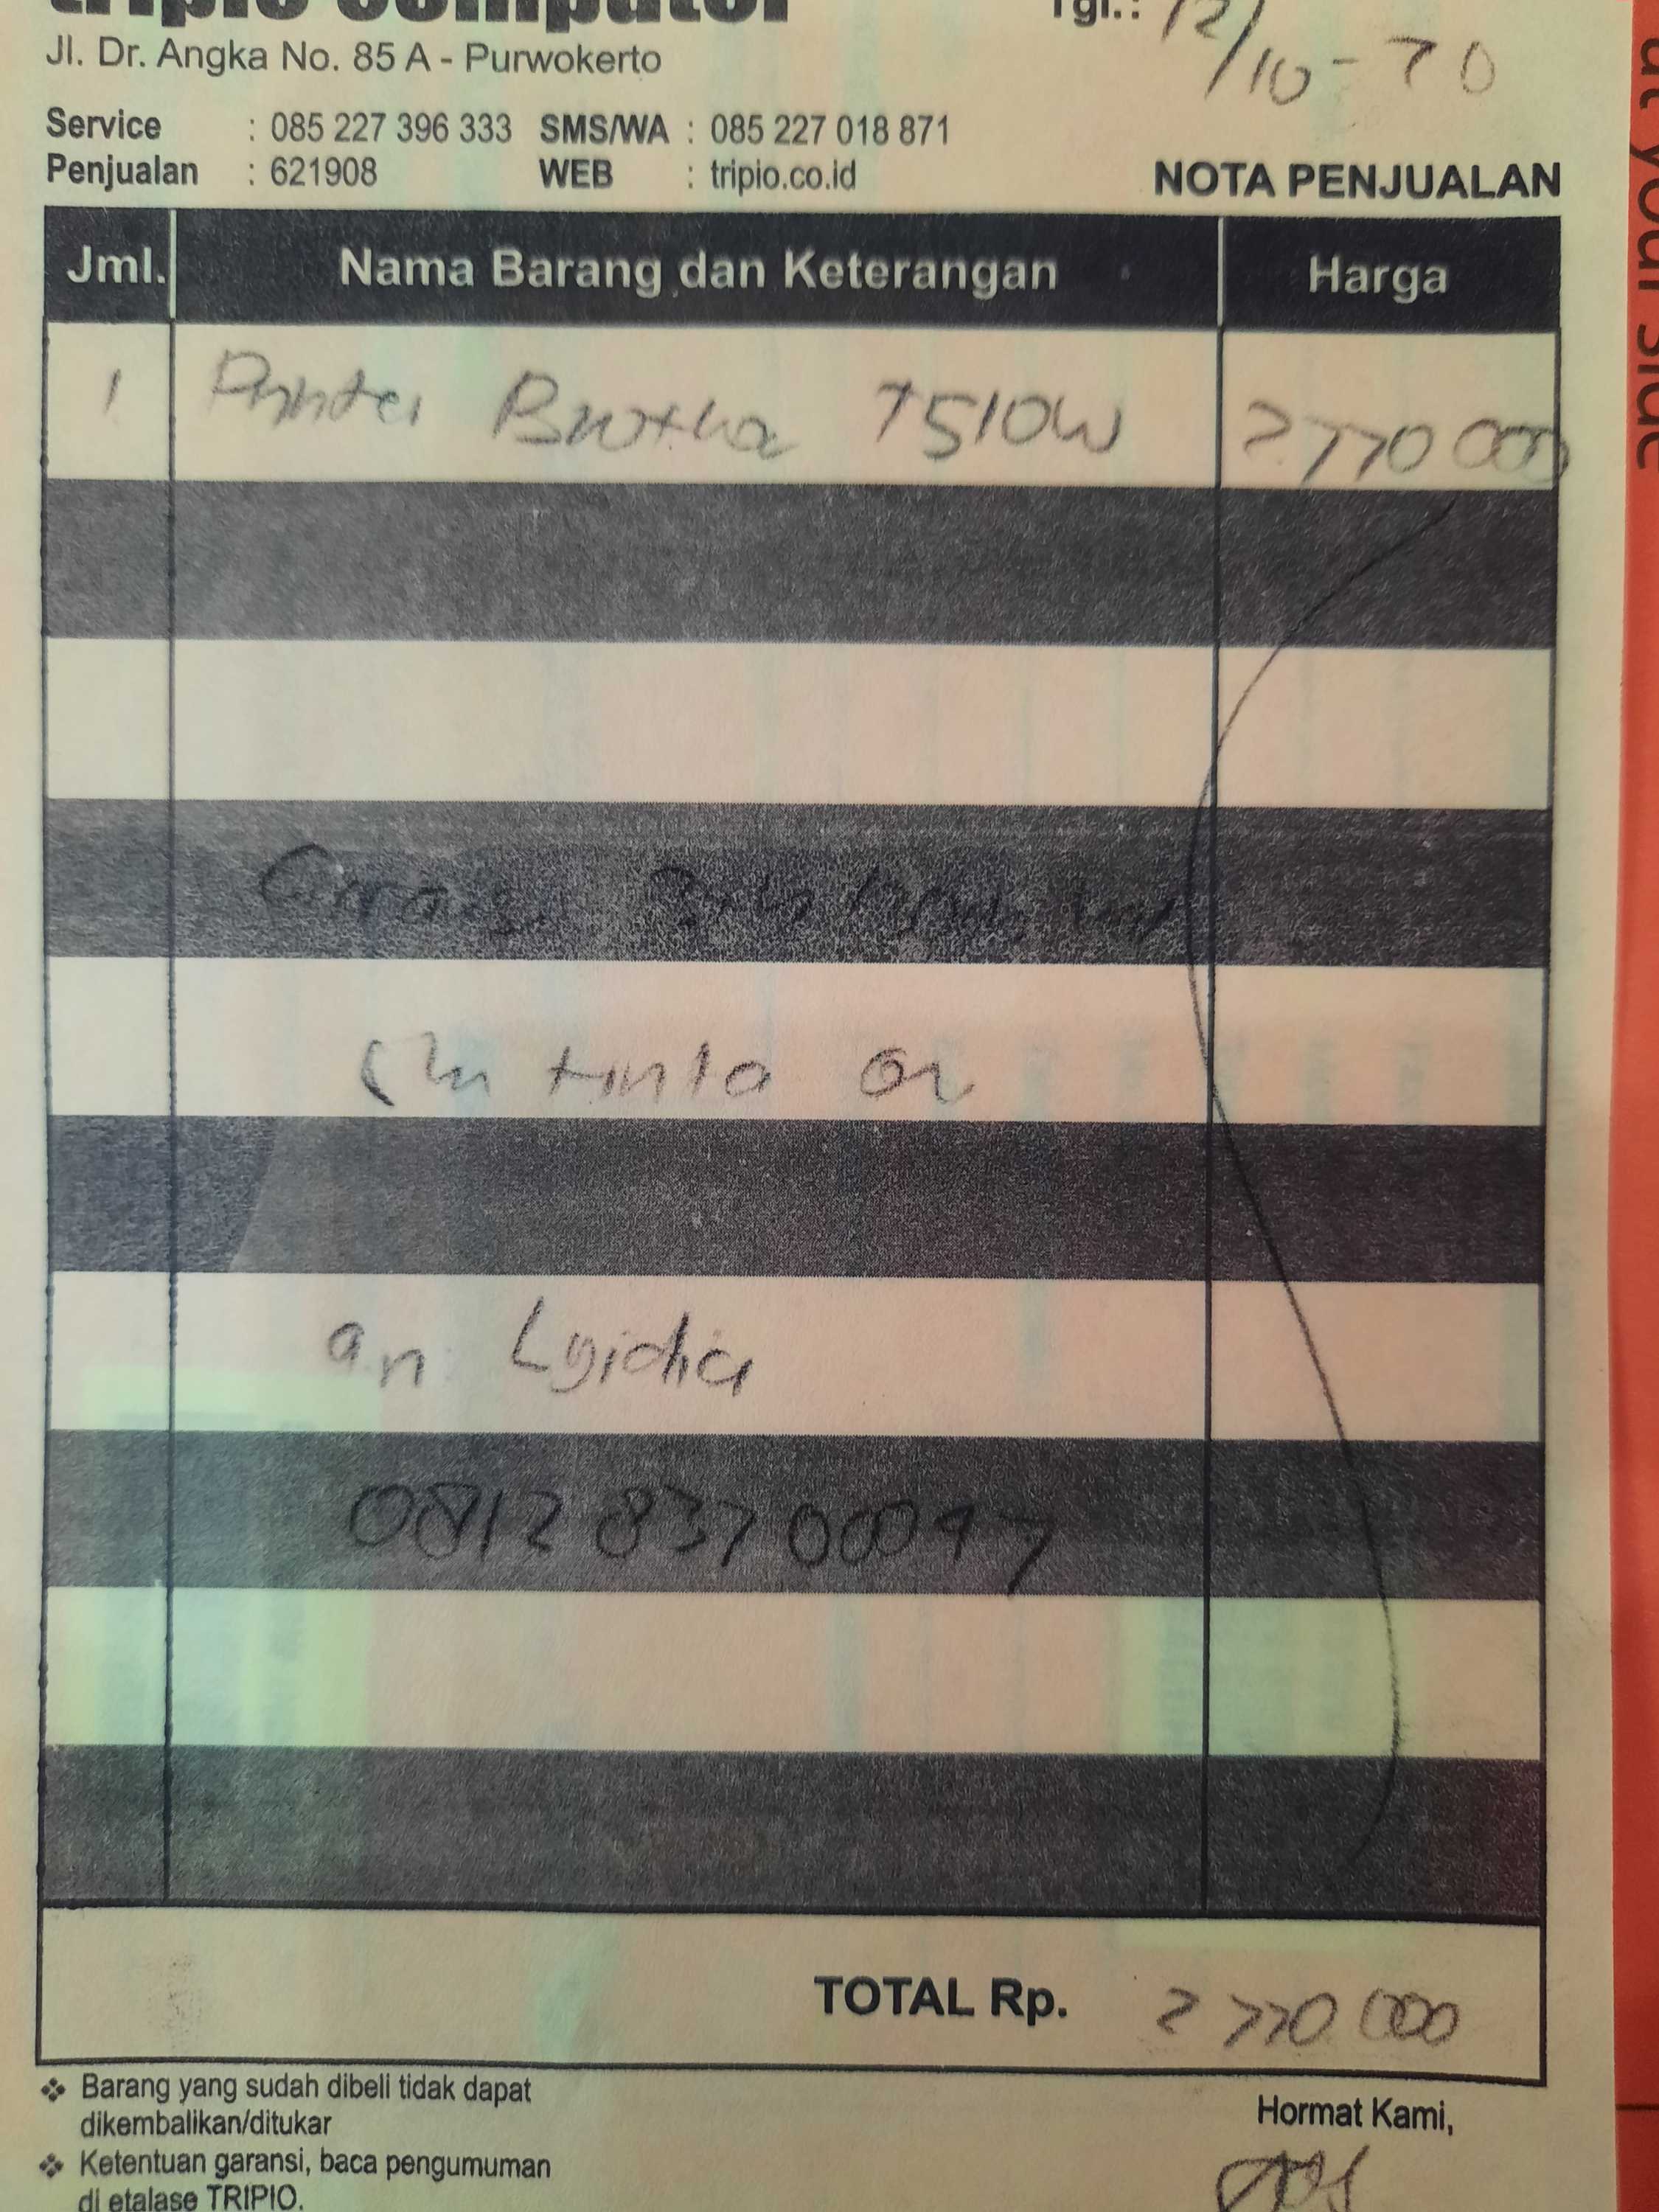 tripio computer
Tgl.: 12/10-20
Jl. Dr. Angka No. 85 A - Purwokerto
Service : 085 227 396 333 SMS/WA : 085 227 018 871
Penjualan : 621908 WEB : tripio.co.id
NOTA PENJUALAN
Jml. Nama Barang dan Keterangan Harga
1 Printer Brother T510W 2.770 000
tinta
an Lyidia
0812 8370 0097
TOTAL Rp. 2 770.000
❖ Barang yang sudah dibeli tidak dapat
dikembalikan/ditukar
Hormat Kami,
❖ Ketentuan garansi, baca pengumuman
di etalase TRIPIO.